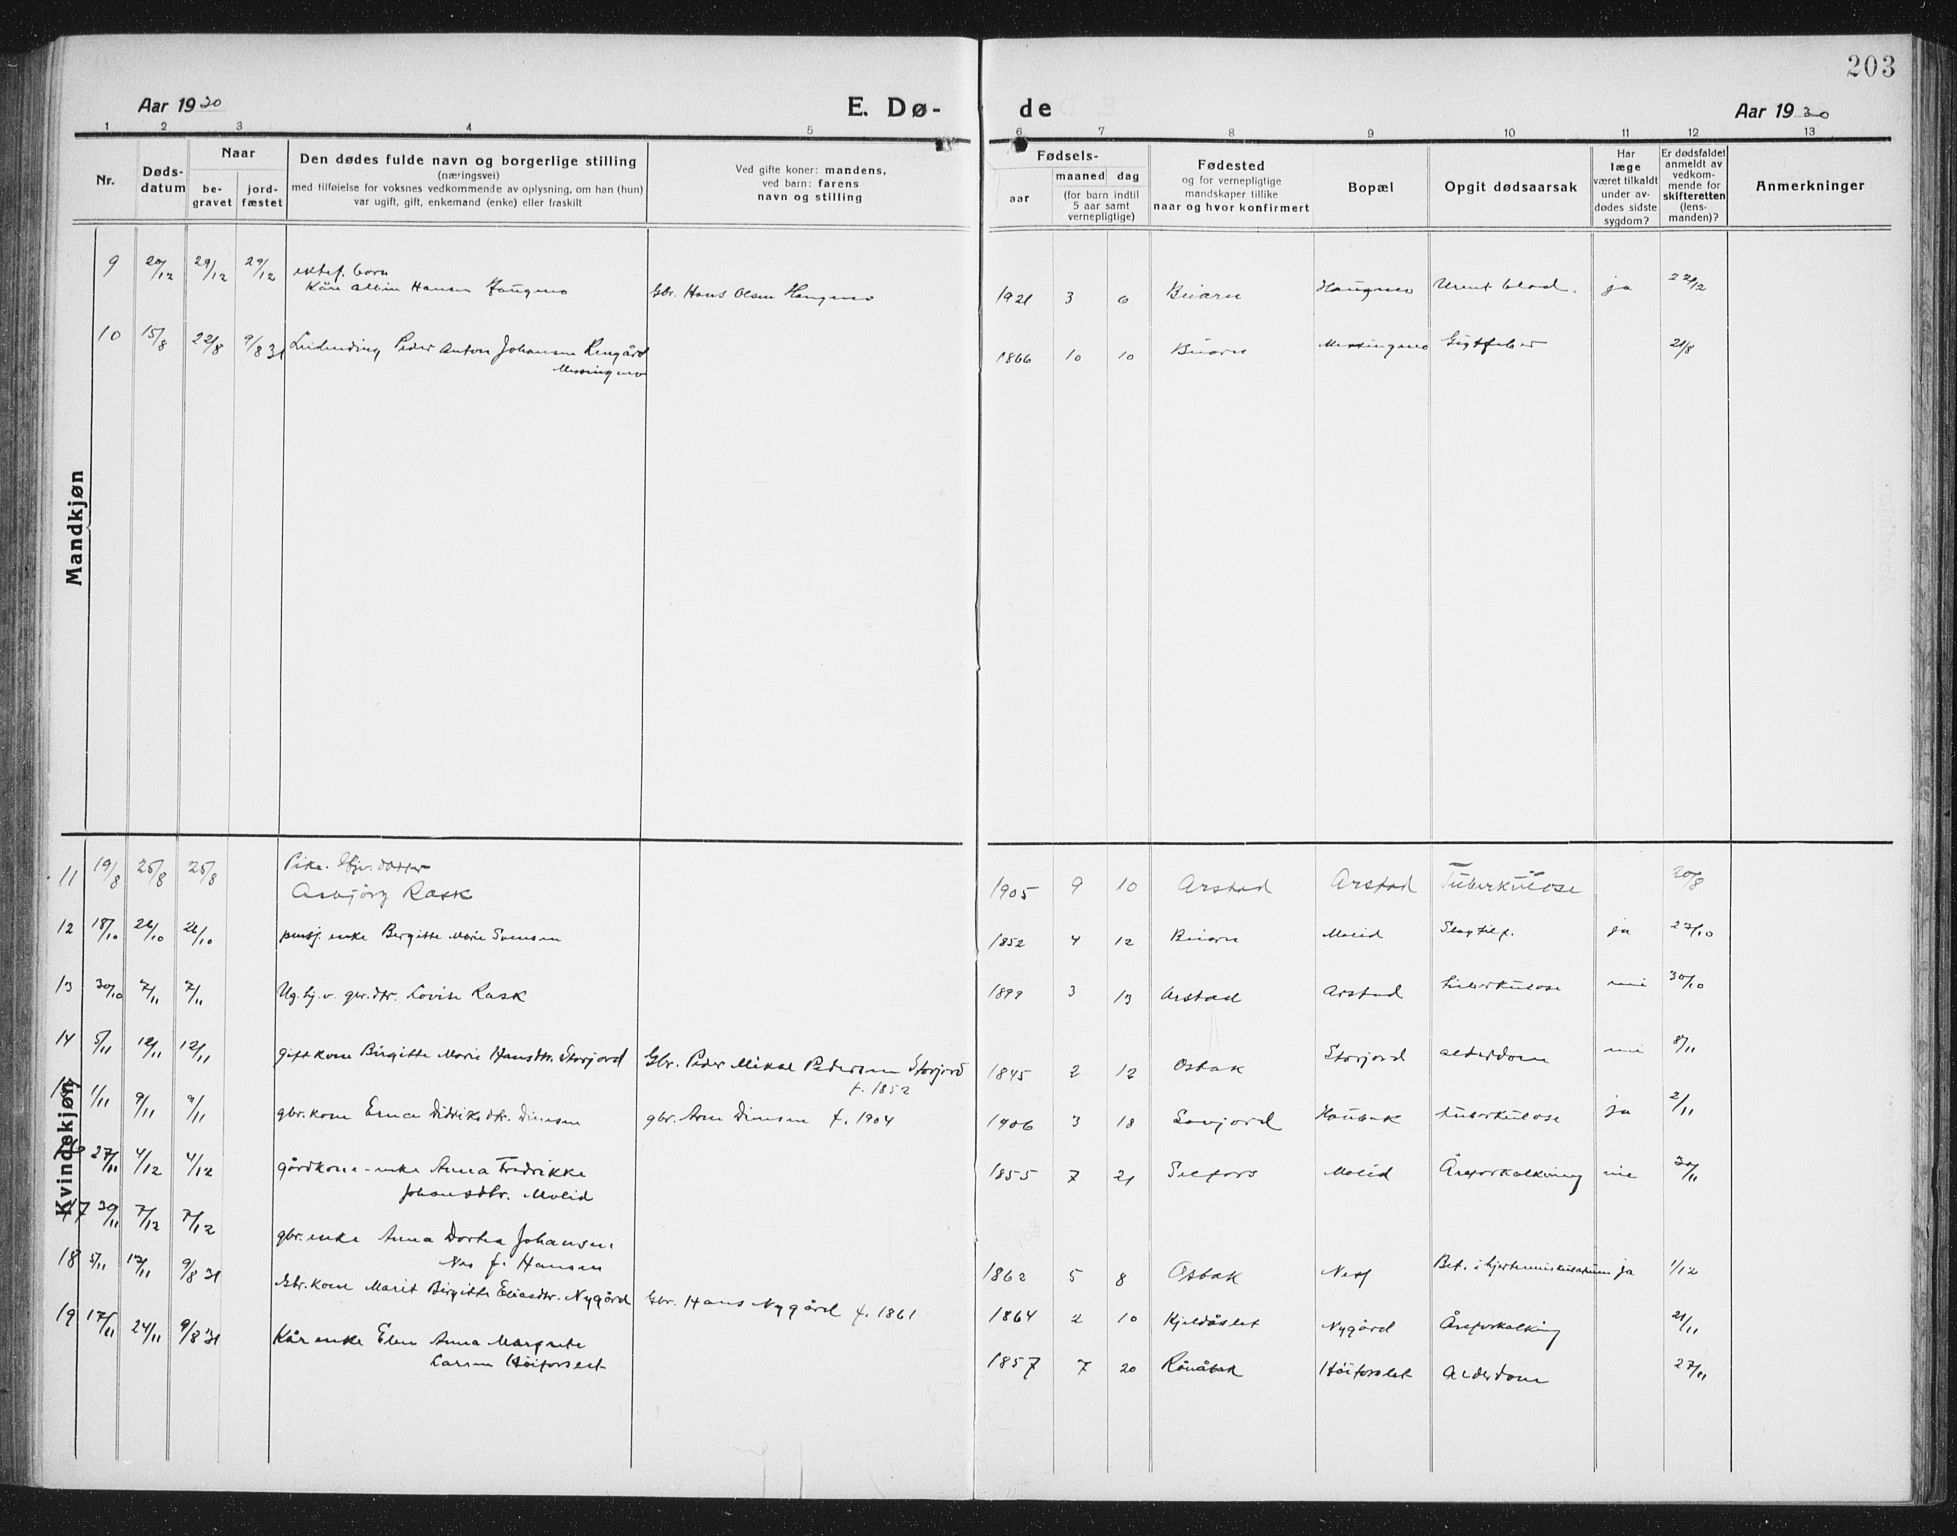 203
Aar 1930 E. Dø- de Aar 1930
1 2 3 4 5 6 7 8 9 10 11 12 13
Nr.
Døds-
datum
Naar
be-
gravet
jord-
fæstet
Den dødes fulde navn og borgerlige stilling
(næringsvei)
med tilføielse for voksnes vedkommende av oplysning, om han (hun)
var ugift, gift, enkemand (enke) eller fraskilt
Ved gifte koner: mandens,
ved barn: farens
navn og stilling
Fødsels-
aar
maaned dag
(for barn indtil
5 aar samt
vernepligtige)
Fødested
og for vernepligtige
mandskaper tillike
naar og hvor konfirmert
Bopæl
Opgit dødsaarsak
Har
læge
været tilkaldt
under av-
dødes sidste
sygdom?
Er dødsfaldet
anmeldt av
vedkom-
mende for
skifteretten
(lens-
manden)?
Anmerkninger
Mandkjøn
9 20/12 29/12 29/12 ektef. barn
Kåre Albin Hansen Haugmo Gbr. Hans Olsen Haugmo 1921 3 6 Beiarn Haugmo Urent blod. ja 22/12
10 15/8 22/8 9/8 31 Peder Anton Johansen Rengård
Messingmo 1866 10 10 Beiarn Messingmo Gigtfeber 21/8
Kvindekjøn
11 19/8 25/8 25/8 Pike. Gbr. datter
Asbjörg Rask 1905 9 10 Arstad Arstad Tüberkülose 20/8
12 18/10 26/10 26/10 pensj. enke Bergitte Marie Svensen 1852 4 12 Beiarn Molid Slagtilf. ja 27/10
13 30/10 7/11 7/11 Ug. hj. v. gbr. dtr. Lovise Rask 1899 3 13 Arstad Arstad tüberkulose nei 30/10
14 5/11 12/11 12/11 gift kone Birgitte Marie Hansdtr. Storjord Gbr. Peder Mikal Pedersen Storjord
f. 1852 1845 2 12 Osbak Storjord alderdom nei 8/11
15 1/11 9/11 9/11 gbr. kone Erna Didriksdtr. Dinesen gbr. Arne Dinesen f. 1904 1906 3 18 Savjord Haubak tuberkulose ja 2/11
16 27/11 4/12 4/12 gårdkone-enke Anna Fredrikke
Johansdtr. Molid 1855 7 21 Selfors Molid Åreforkalkning nei 30/11
17 30/11 7/12 7/12 gbr. enke Anna Dortea Johansen
Nes f. Hansen 1862 5 8 Osbak Nes Bet. i ja 1/12
18 5/11 12/11 9/8 31 Gbr. kone Marit Birgitte Eliasdtr. Nygård Gbr. Hans Nygård f. 1861 1864 2 10 Kjeldåslet Nygård Åreforkalking 21/11
19 17/11 24/11 9/8 31 Kår enke Elen Anna Margrete
Larsen Höiforslet 1857 7 20 Rönåbak Höiforslet Alderdom 27/11